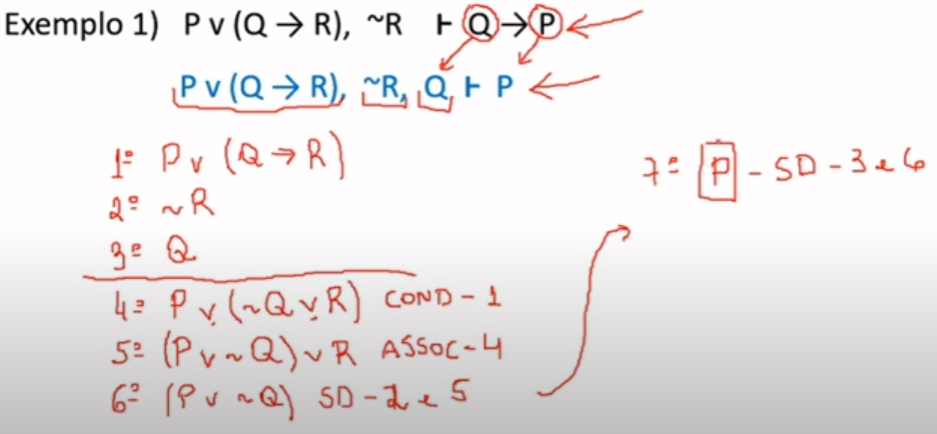 Exemplo 1) P v (Q → R), ~R ⊢ Q → P
P v (Q → R), ~R, Q ⊢ P
1º P v (Q → R)
2º ~R
3º Q
4º P v (~Q v R) COND - 1
5º (P v ~Q) v R ASSOC - 4
6º (P v ~Q) SD - 2 e 5
7º P - SD - 3 e 6